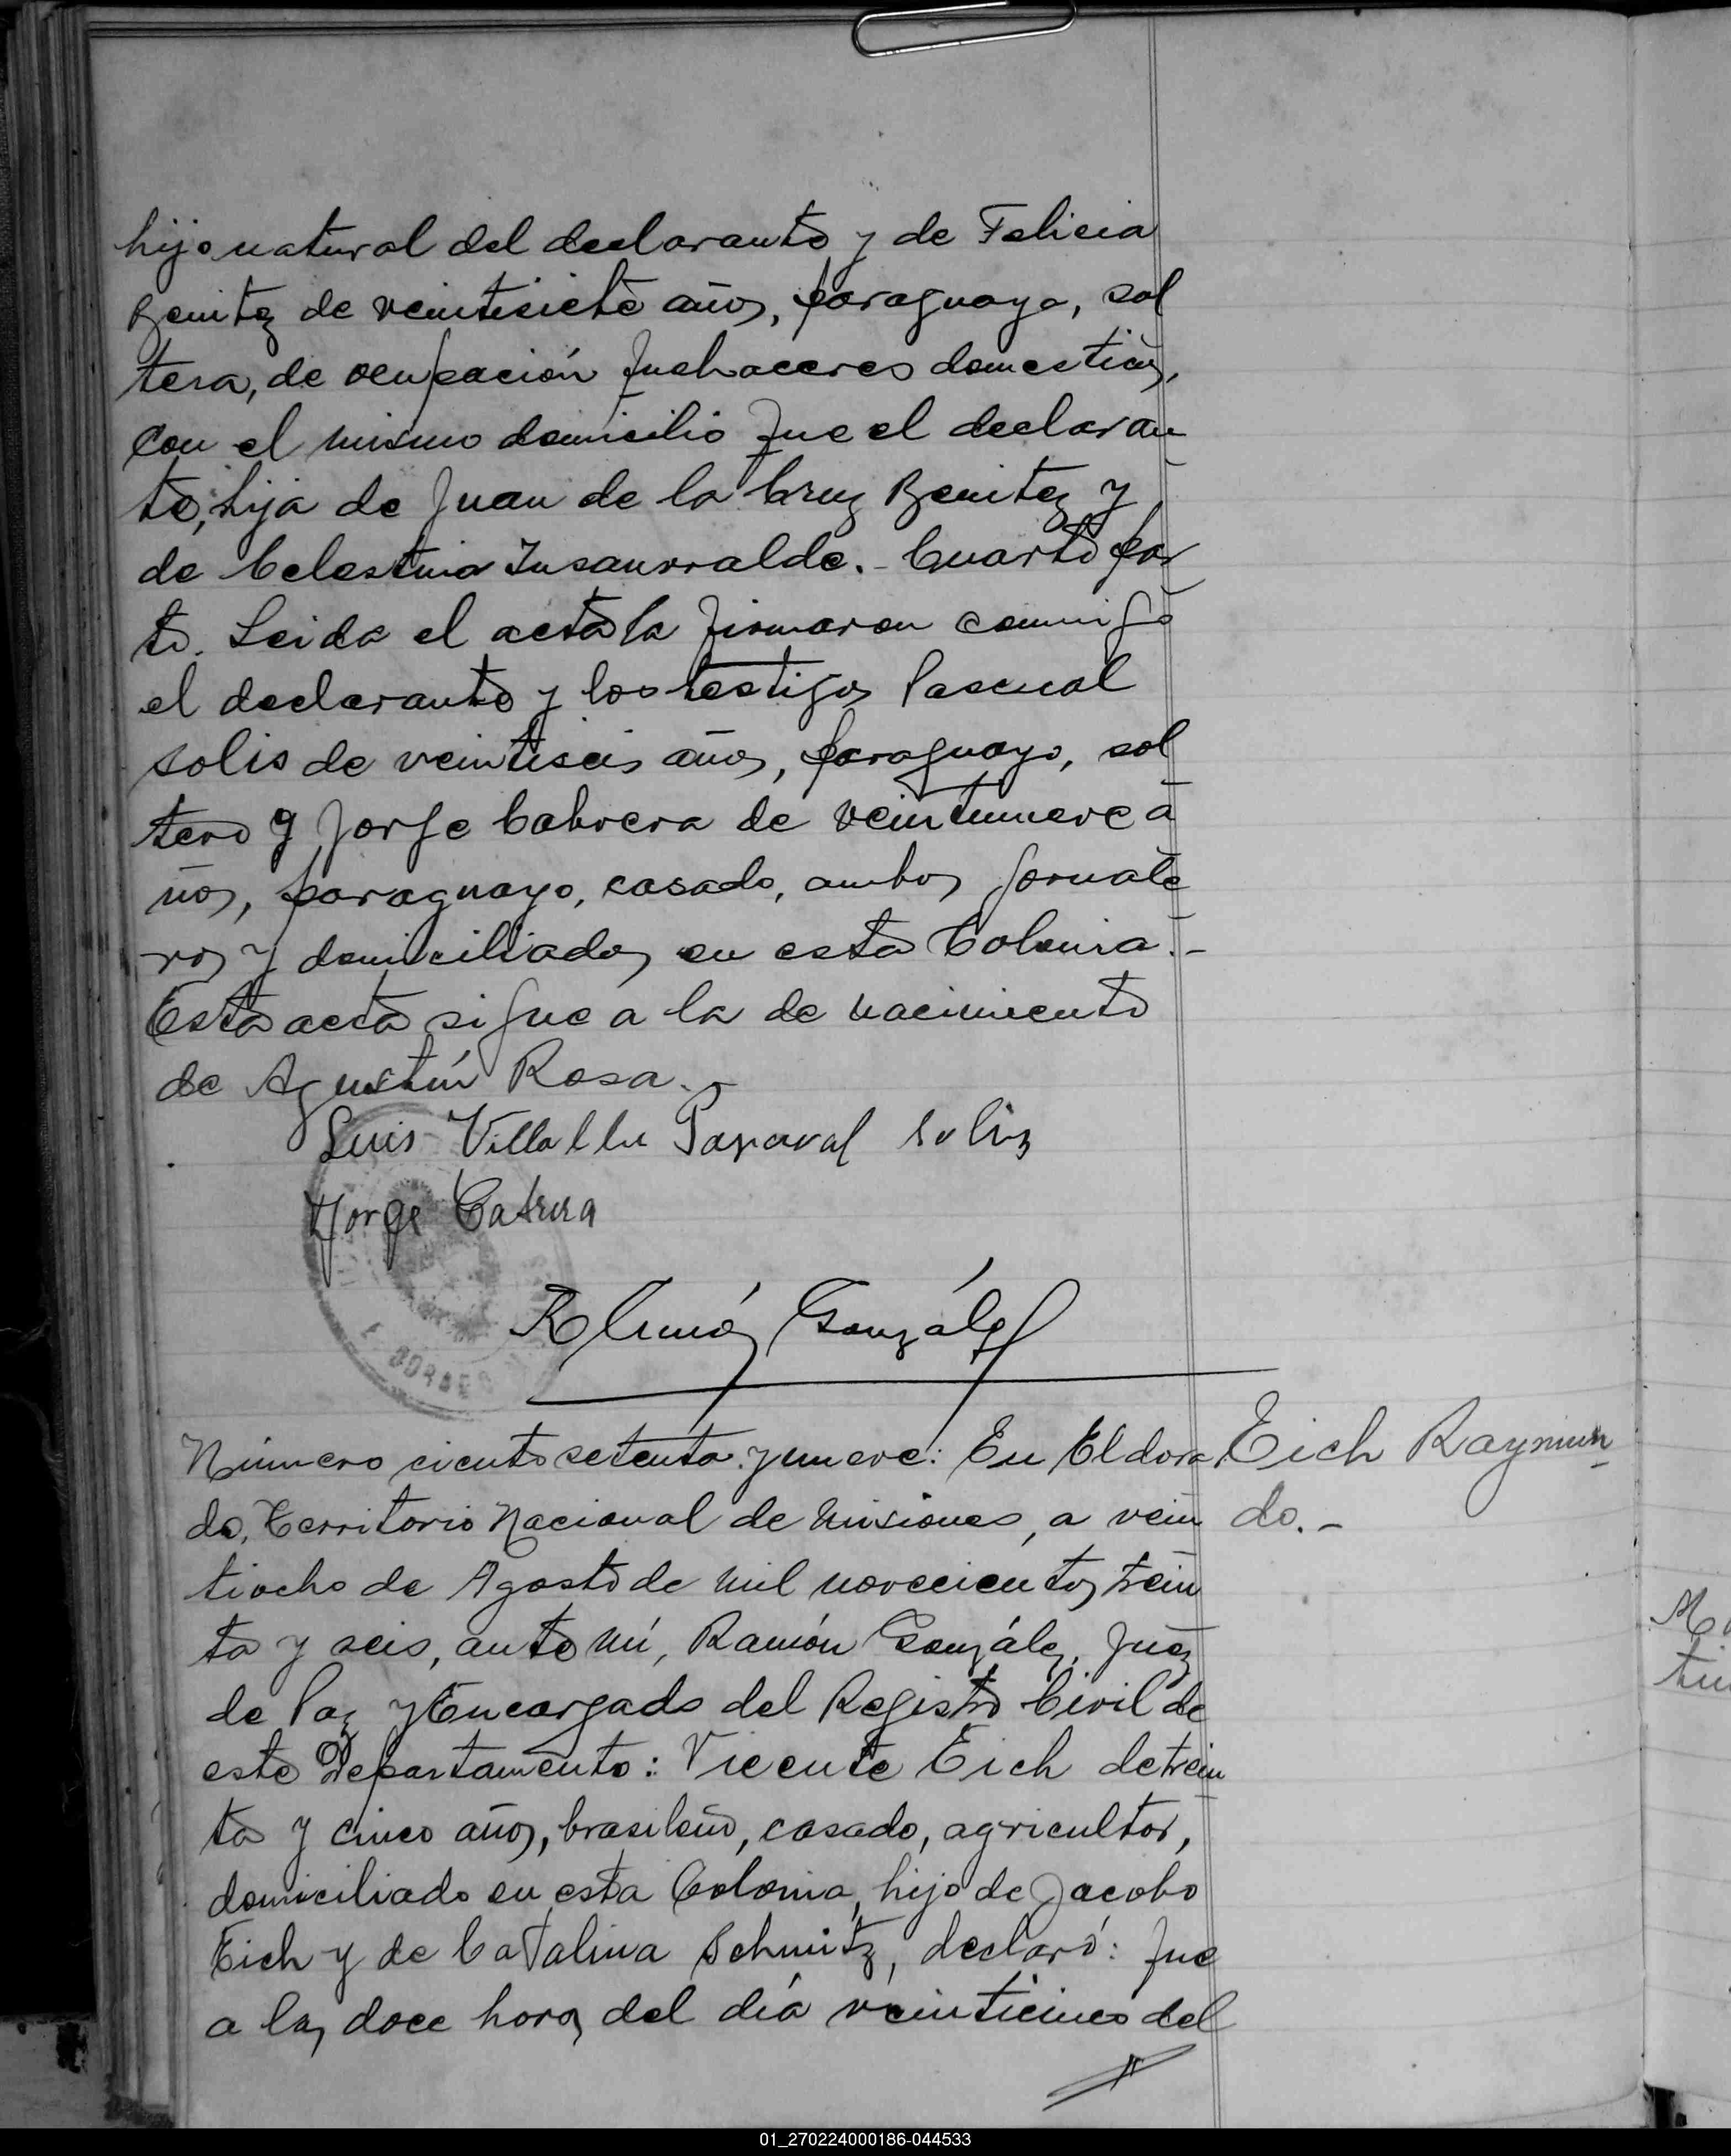 hijo natural del declarante y de Felicia
Benitez de veintisiete años, paraguaya, sol
tera, de ocupación quehaceres domesticos,
con el mismo domicilio que el declaran
te, hija de Juan de la Cruz Benitez y
de Celestina Insaurralde.- Cuarto par
to. Leida el acta la firmaron conmigo
el declarante y los testigos Pascual
Solis de veintiseis años, paraguayo, sol
tero y Jorge Cabrera de veintinueve a
ños, paraguayo, casado, ambos jornale
ros y domiciliados en esta Colonia.-
Esta acta sigue a la de nacimiento
de Agustín Rosa.-
Luis Villalba Pascual Solis
Jorge Cabrera
Ramón González
Número ciento setenta y nueve: En Eldora
do, Territorio Nacional de Misiones, a vein
tiocho de Agosto de mil novecientos trein
ta y seis, ante mí, Ramón González, Juez
de Paz y Encargado del Registro Civil de
este Departamento: Vicente Eich de trein
ta y cinco años, brasileño, casado, agricultor,
domiciliado en esta Colonia, hijo de Jacobo
Eich y de Catalina Schmitz, declaró: que
a las doce horas del día veinticinco del
Eich Raymun
do.-
01_270224000186-044533